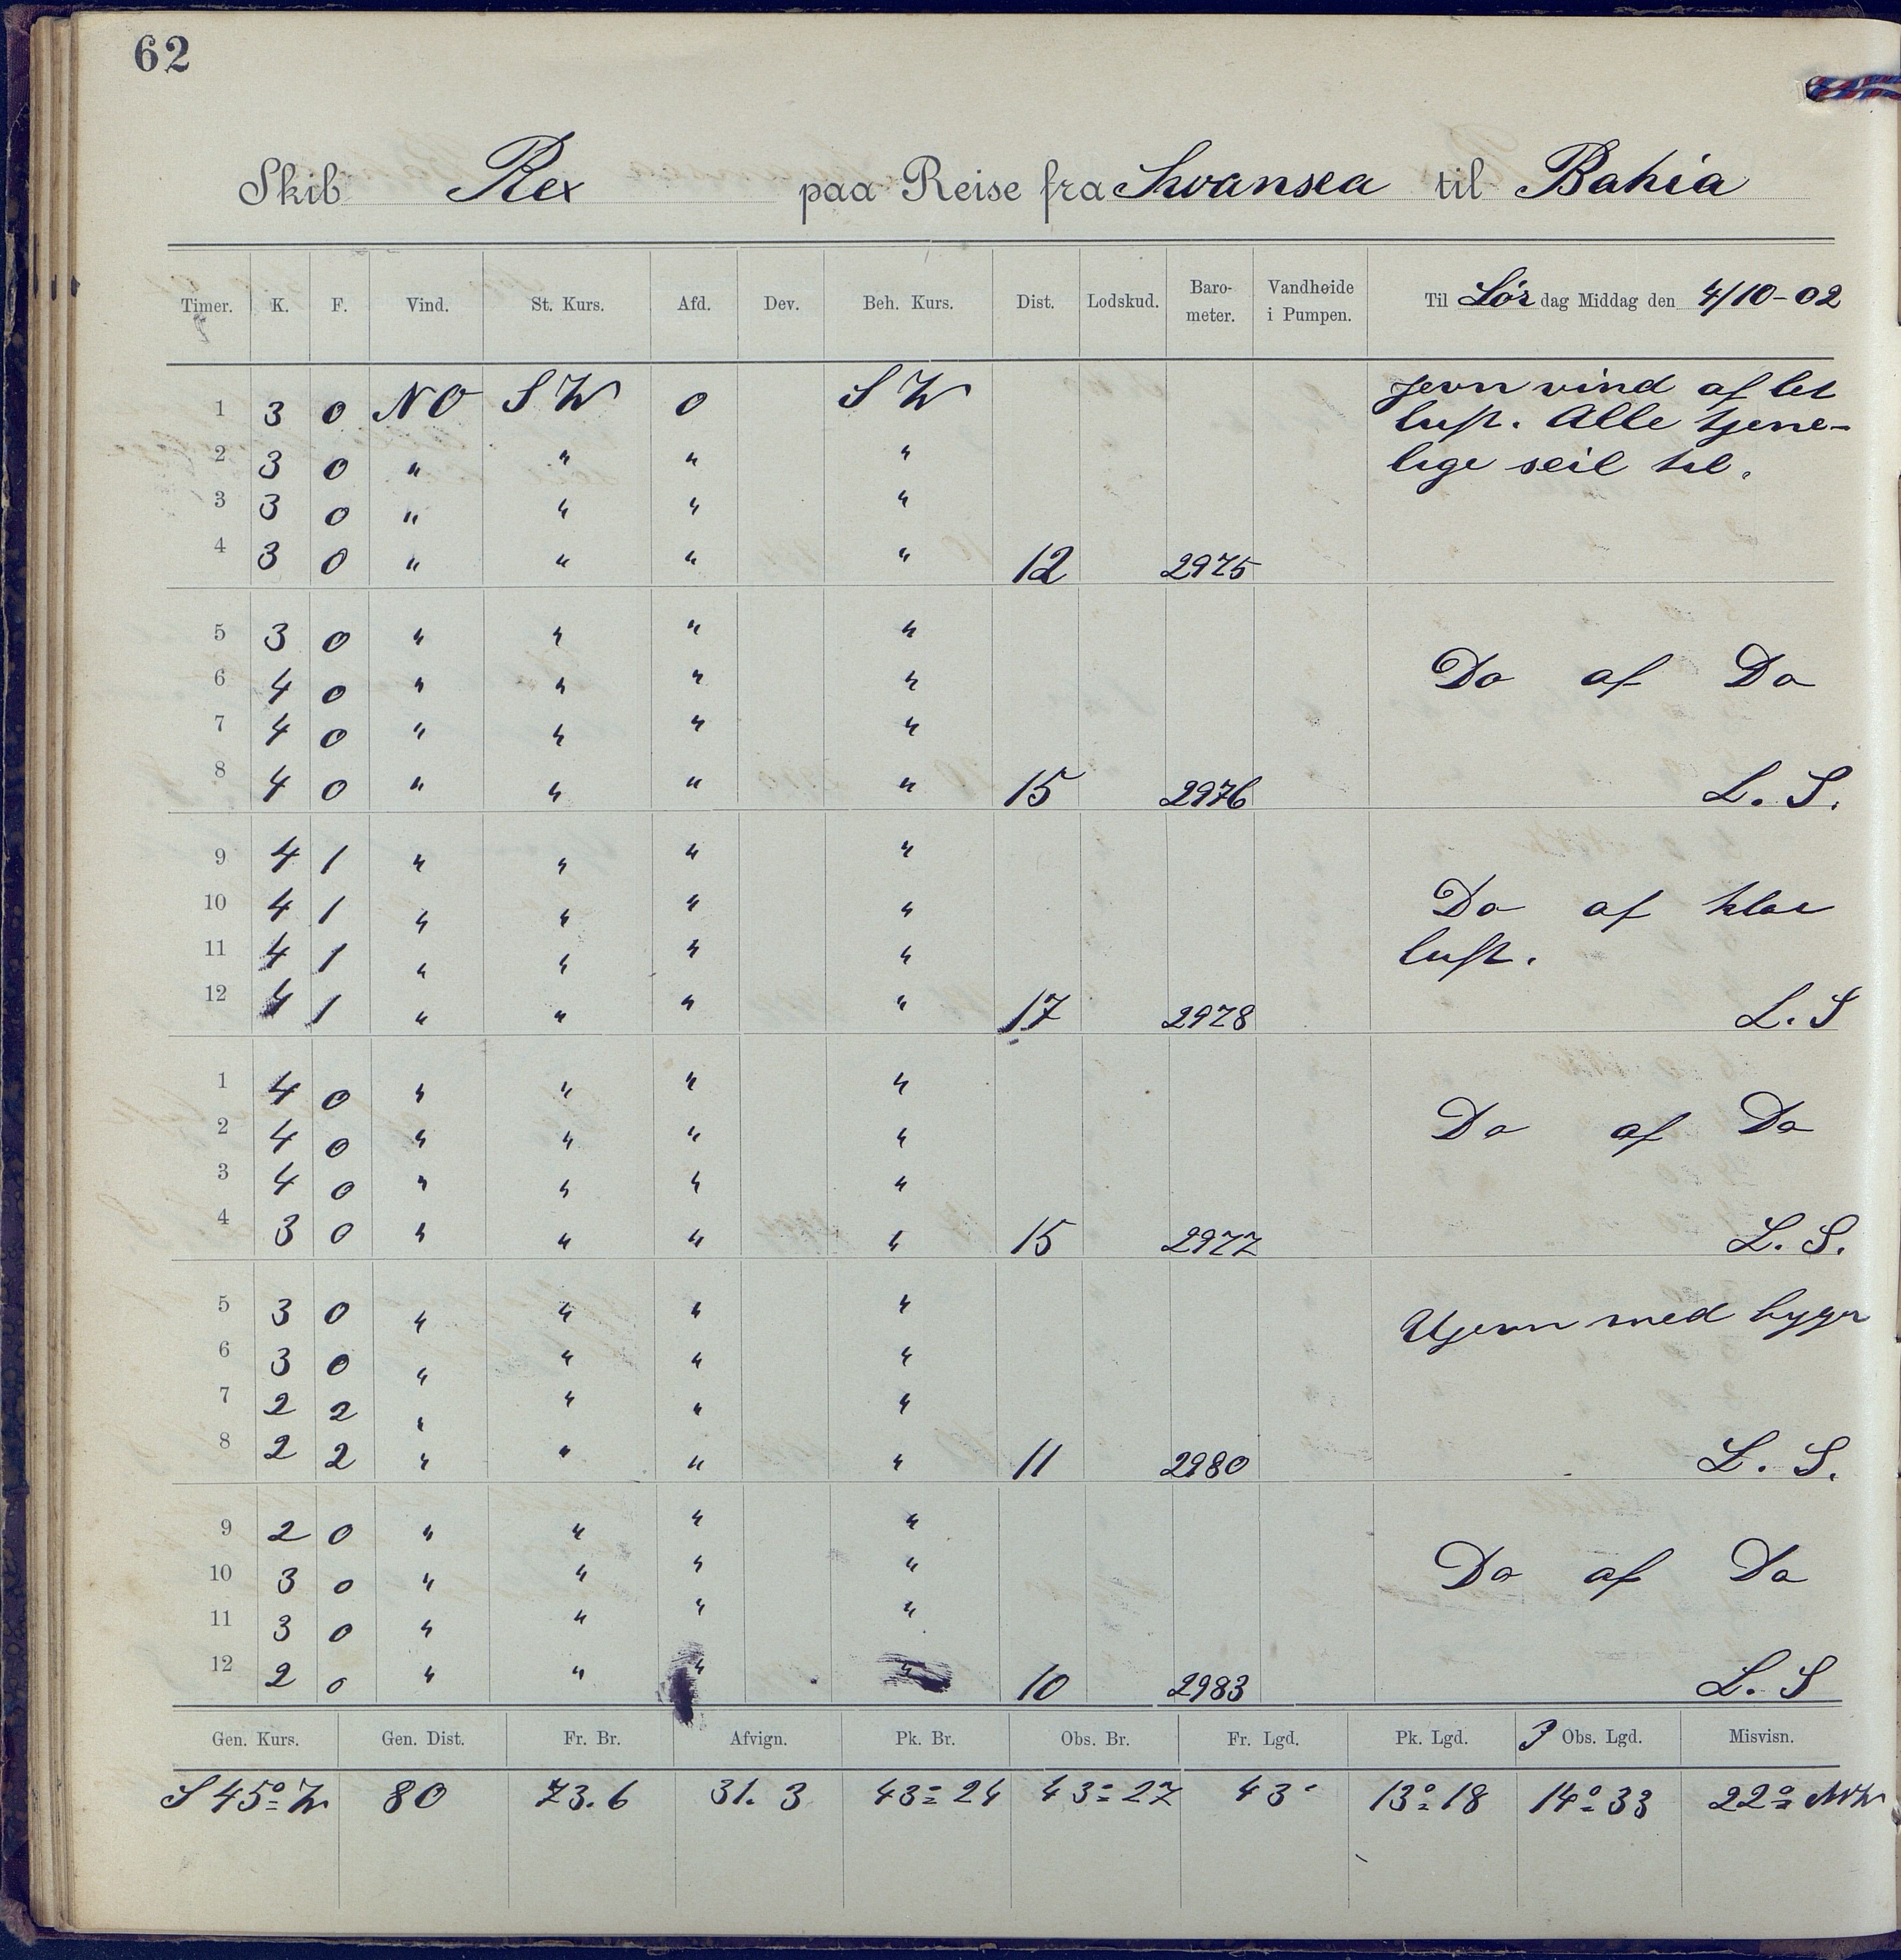 62
Skib Rex paa Reise fra Swansea til Bahia
Timer. K. F. Vind. St. Kurs. Afd. Dev. Beh. Kurs. Dist. Lodskud. Baro-meter. Vandhøide i Pumpen. Til Lör dag Middag den 4/10-02
1 3 0 NO SW 0 SW Jevn vind af let
luft. Alle tjene-
2 3 0 " " " " lige seil til.
3 3 0 " " " "
4 3 0 " " " " 12 2975
5 3 0 " " " "
6 4 0 " " " " Do af Do
7 4 0 " " " "
8 4 0 " " " " 15 2976 L. S.
9 4 1 " " " "
10 4 1 " " " " Do af klar
11 4 1 " " " " luft.
12 4 1 " " " " 17 2978 L. S
1 4 0 " " " "
2 4 0 " " " " Do af Do
3 4 0 " " " "
4 3 0 " " " " 15 2977 L. S.
5 3 0 " " " " Ujevn med byger
6 3 0 " " " "
7 2 2 " " " "
8 2 2 " " " " 11 2980 L. S.
9 2 0 " " " "
10 3 0 " " " " Do af Do
11 3 0 " " " "
12 2 0 " " " " 10 2983 L. S
Gen. Kurs. Gen. Dist. Fr. Br. Afvign. Pk. Br. Obs. Br. Fr. Lgd. Pk. Lgd. Obs. Lgd. Misvisn.
S 45° W 80 73.6 31.3 43° 24 43° 27 43' 13° 18 14° 33 22° NW